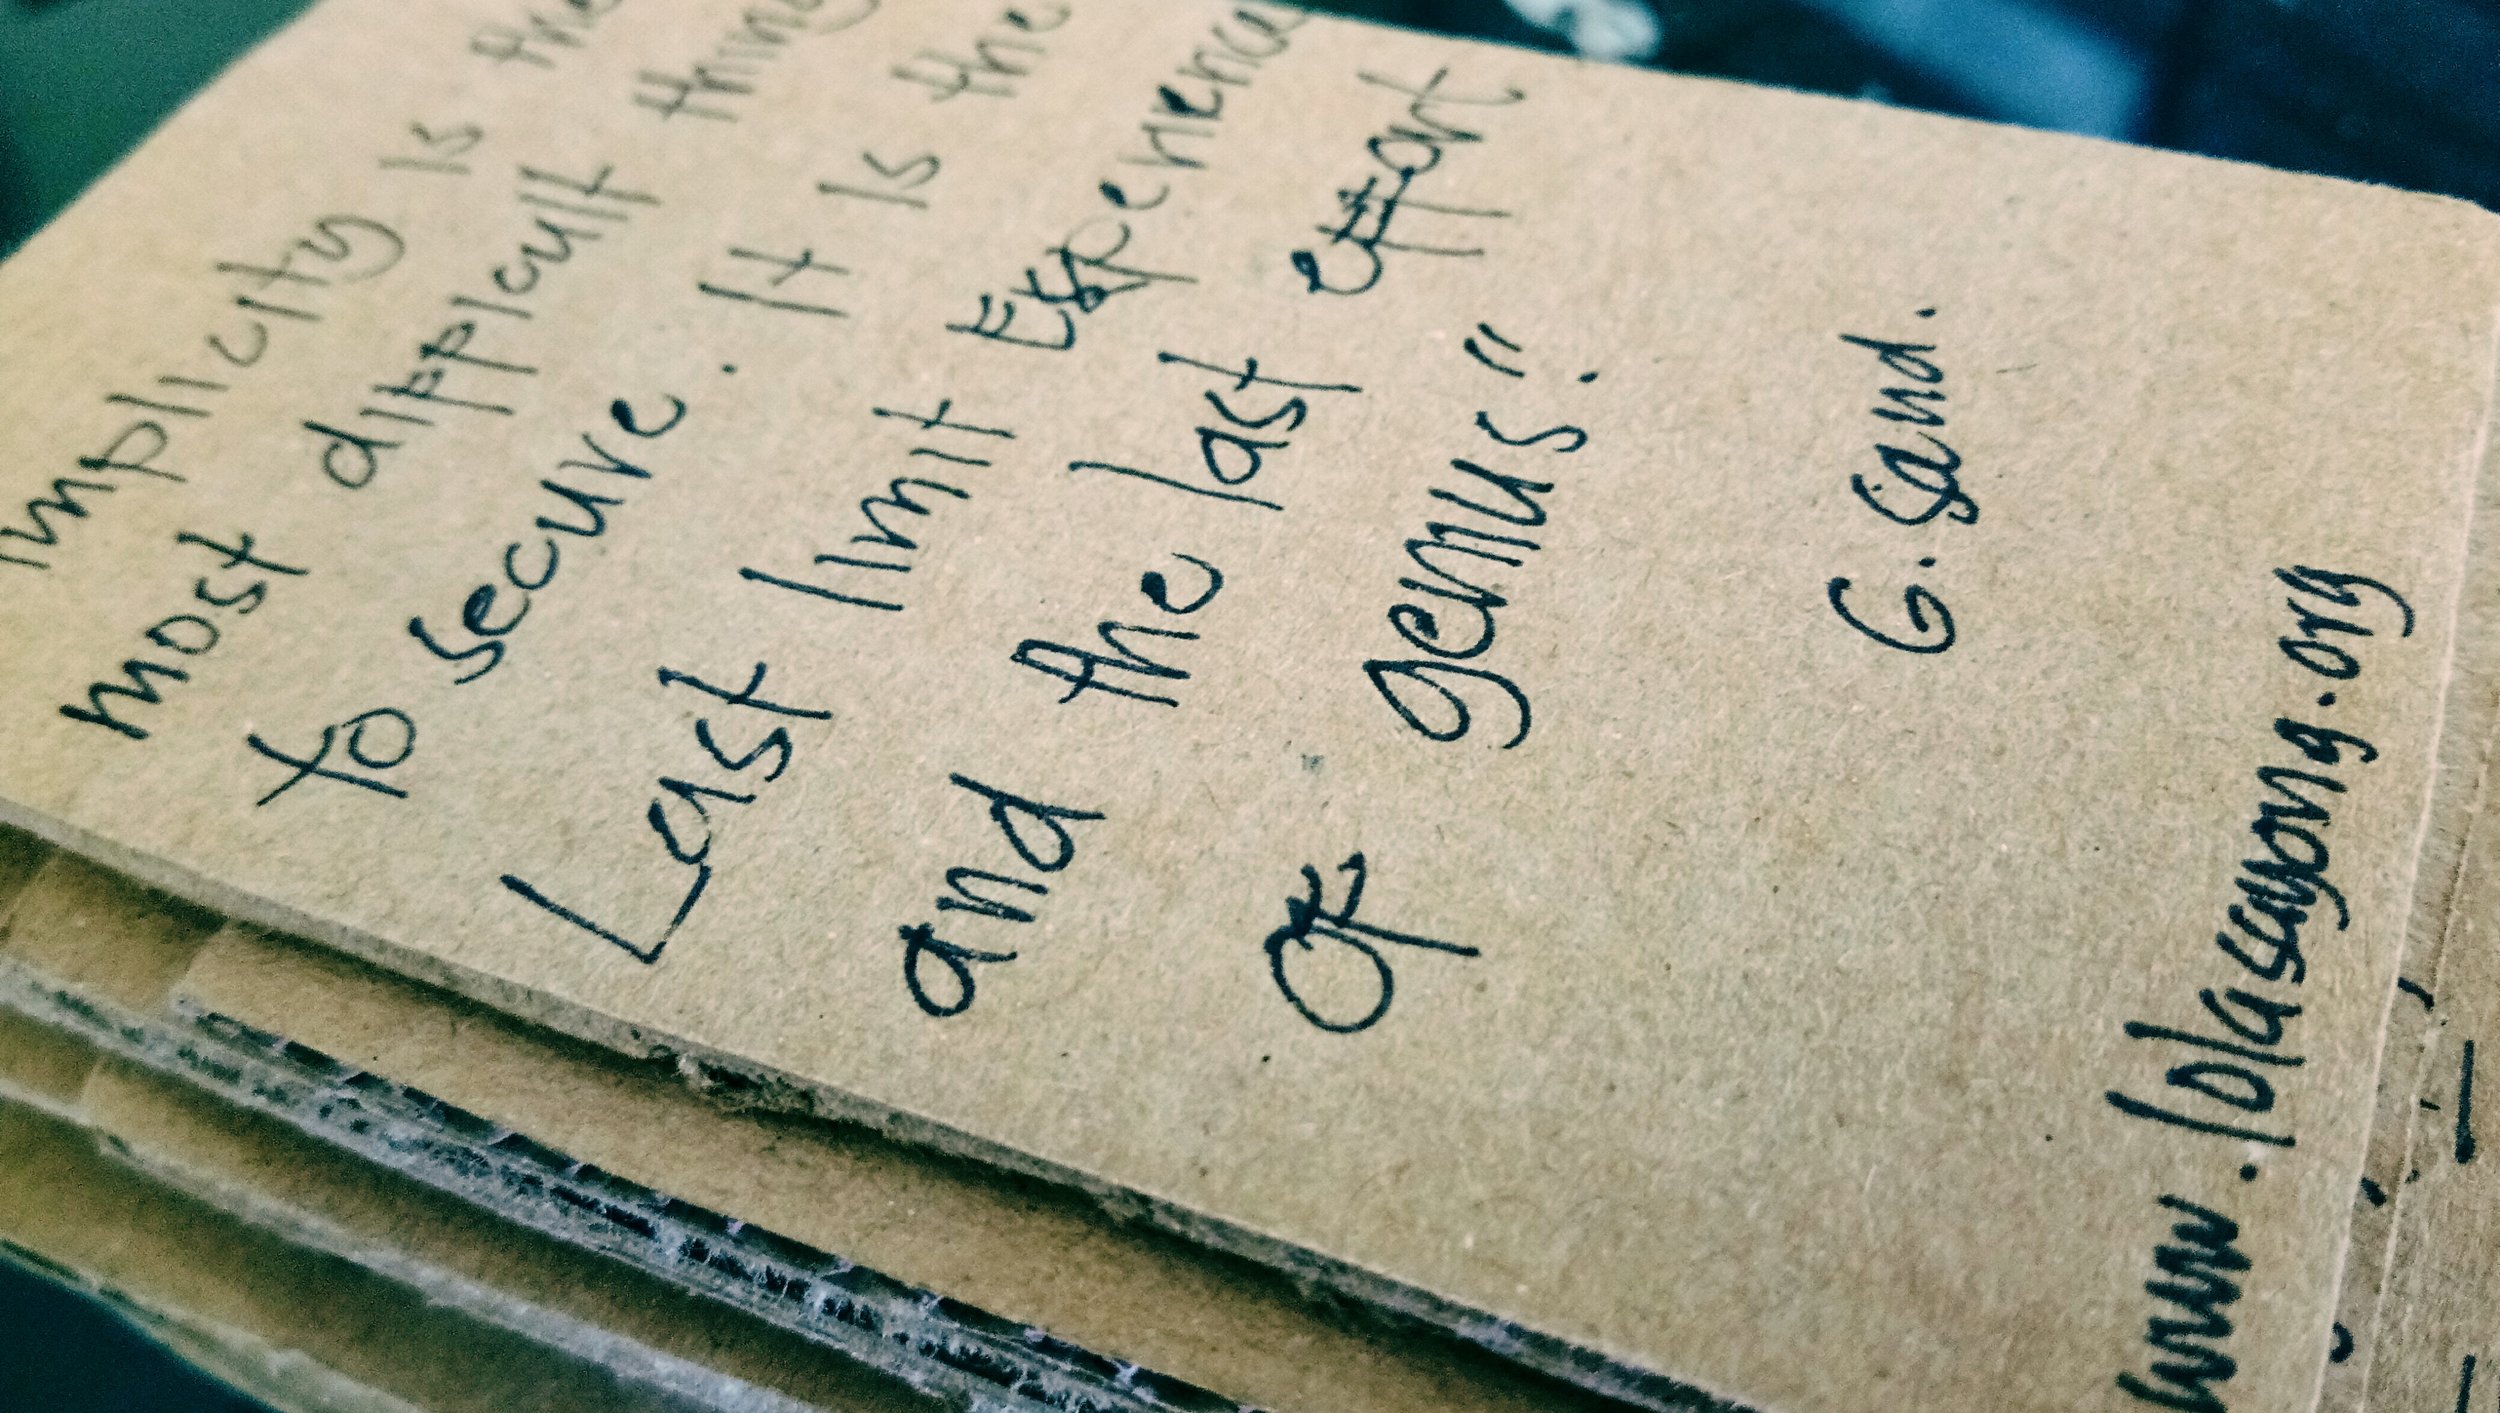 implicity is the
most difficult thing
to secure. It is the
Last limit Experience
and the last effort
of genius".
G. Sand.
www.lolasayong.org